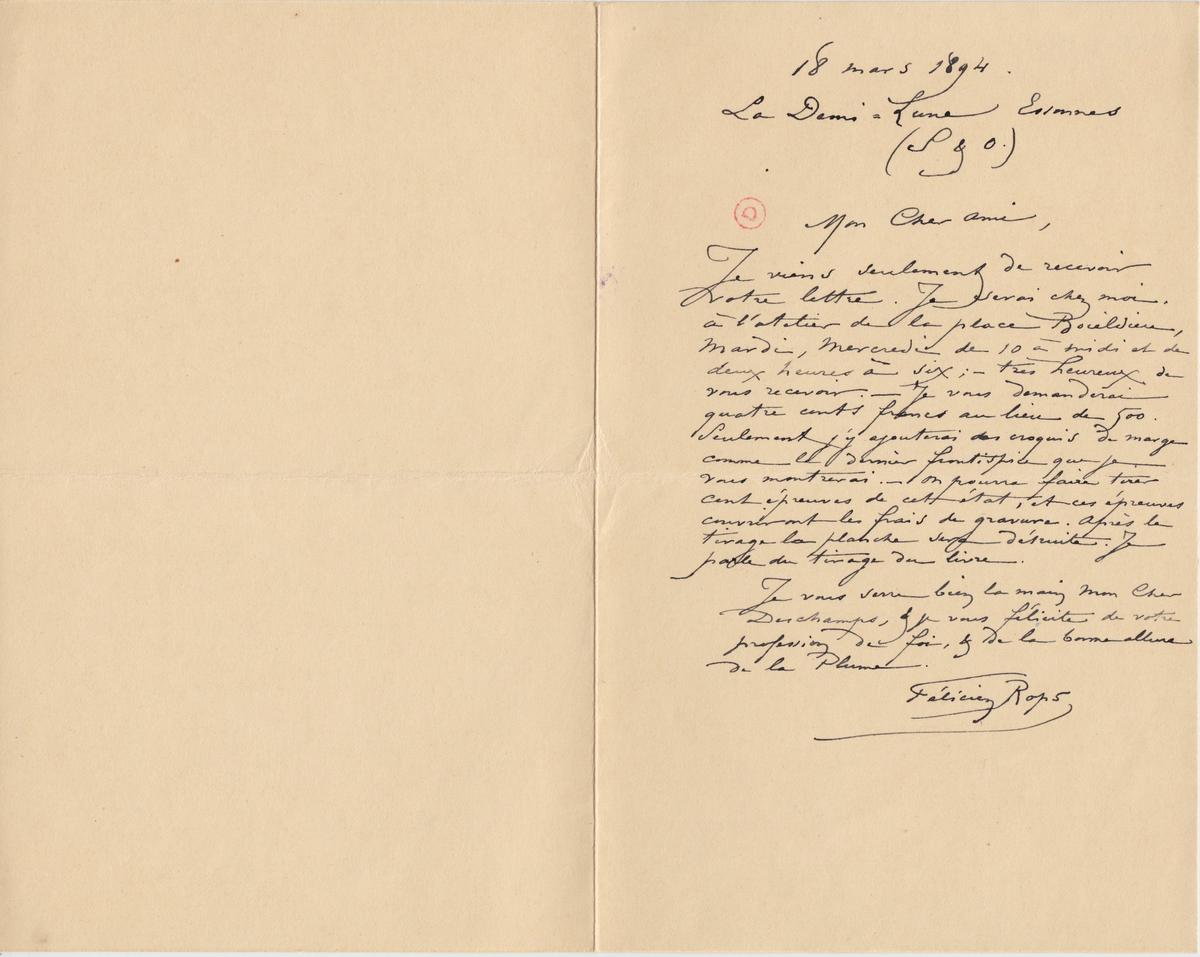 18 mars 1894.
La Demi=Lune Essonnes
(S & O.)
Mon Cher ami,
Je viens seulement de recevoir
votre lettre. Je serai chez moi,
à l'atelier de la place Boieldieu,
Mardi, Mercredi de 10 à midi et de
deux heures à six; – très heureux de
vous recevoir. – Je vous demanderai
quatre cents francs au lieu de 500.
Seulement j'y ajouterai des croquis de marge
comme le dernier frontispice que je
vous montrerai. – on pourra faire tirer
cent épreuves de cet état, et ces épreuves
couvriront les frais de gravure. Après le
tirage la planche sera détruite. Je
parle du tirage du livre.
Je vous serre bien la main mon Cher
Deschamps, & je vous félicite de votre
profession de foi, & de la bonne allure
de la Plume.
Félicien Rops